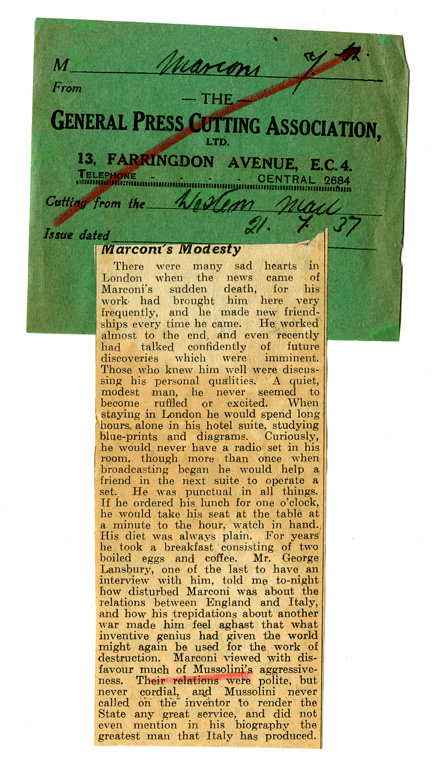 M Marconi
From
— THE —
GENERAL PRESS CUTTING ASSOCIATION,
LTD.
13, FARRINGDON AVENUE, E.C. 4.
TELEPHONE - - - - CENTRAL 2684
Cutting from the Western Mail
Issue dated 21. 7. 37
Marconi's Modesty
There were many sad hearts in
London when the news came of
Marconi's sudden death, for his
work had brought him here very
frequently, and he made new friend-
ships every time he came. He worked
almost to the end, and even recently
had talked confidently of future
discoveries which were imminent.
Those who knew him well were discus-
sing his personal qualities. A quiet,
modest man, he never seemed to
become ruffled or excited. When
staying in London he would spend long
hours alone in his hotel suite, studying
blue-prints and diagrams. Curiously,
he would never have a radio set in his
room, though more than once when
broadcasting began he would help a
friend in the next suite to operate a
set. He was punctual in all things.
If he ordered his lunch for one o'clock,
he would take his seat at the table at
a minute to the hour, watch in hand.
His diet was always plain. For years
he took a breakfast consisting of two
boiled eggs and coffee. Mr. George
Lansbury, one of the last to have an
interview with him, told me to-night
how disturbed Marconi was about the
relations between England and Italy,
and how his trepidations about another
war made him feel aghast that what
inventive genius had given the world
might again be used for the work of
destruction. Marconi viewed with dis-
favour much of Mussolini's aggressive-
ness. Their relations were polite, but
never cordial, and Mussolini never
called on the inventor to render the
State any great service, and did not
even mention in his biography the
greatest man that Italy has produced.